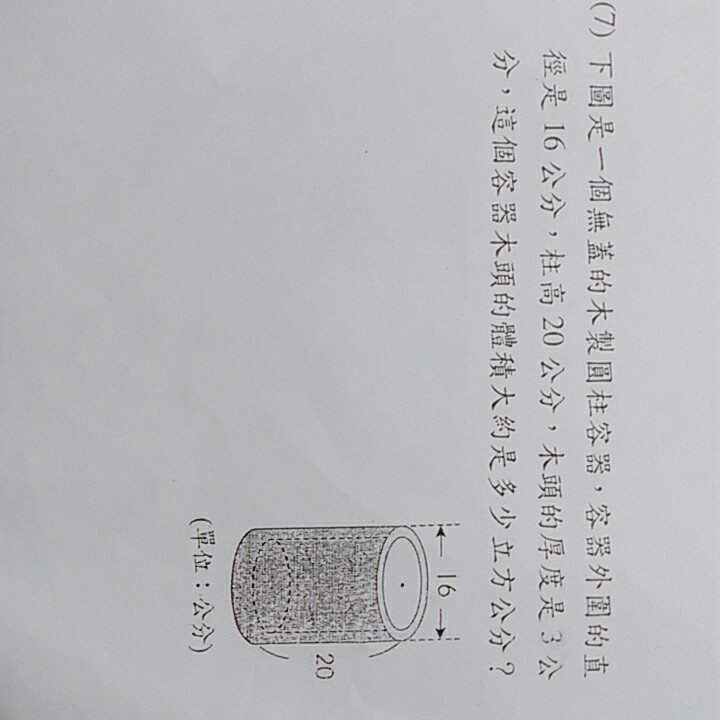 (7) 下圖是一個無蓋的木製圓柱容器，容器外圍的直
徑是 16 公分，柱高 20 公分，木頭的厚度是 3 公
分，這個容器木頭的體積大約是多少立方公分？
16
20
(單位：公分)